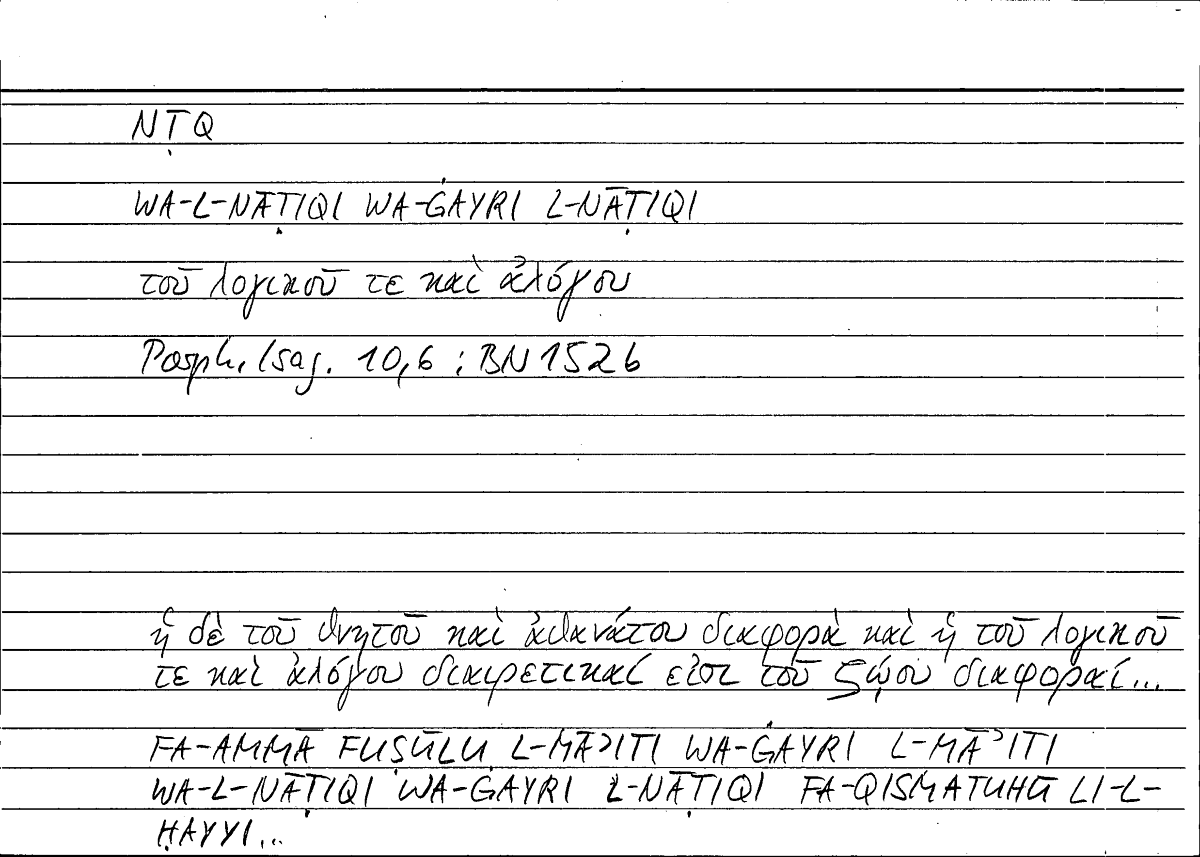 NṬQ
WA-L-NĀṬIQI WA-ĠAYRI L-NĀṬIQI
τοῦ λογικοῦ τε καὶ ἀλόγου
Porph. Isag. 10,6 ; BN 152b
ἡ δὲ τοῦ θνητοῦ καὶ ἀθανάτου διαφορὰ καὶ ἡ τοῦ λογικοῦ
τε καὶ ἀλόγου διαιρετικαί εἰσι τοῦ ζῴου διαφοραί...
FA-AMMĀ FUṢŪLU L-MĀʾITI WA-ĠAYRI L-MĀʾITI
WA-L-NĀṬIQI WA-ĠAYRI L-NĀṬIQI FA-QISMATUHŪ LI-L-
ḤAYYI...